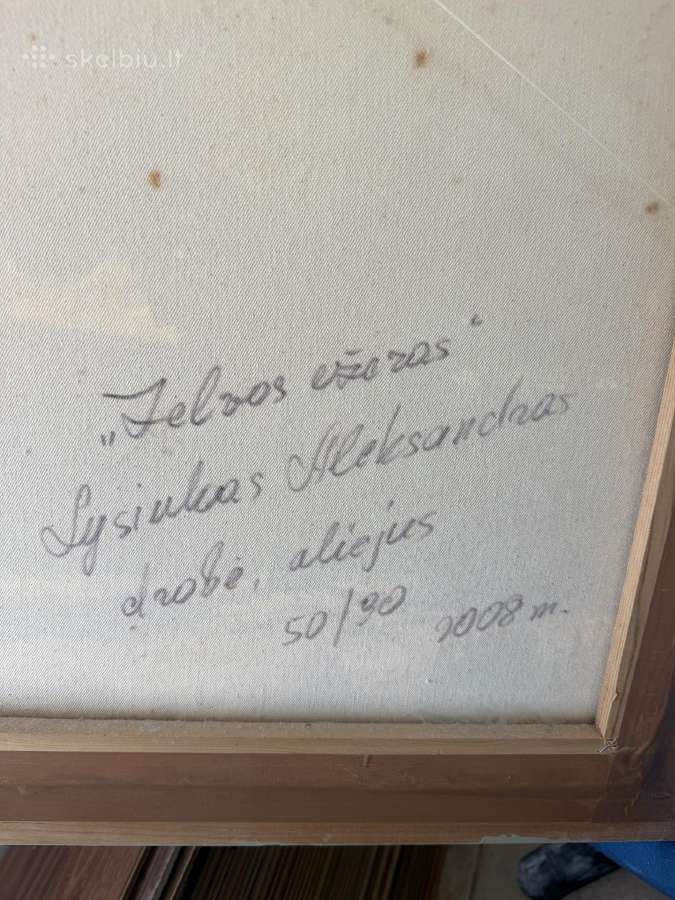 skelbiu.lt
„Želvos ežeras“
Lysiukas Aleksandras
drobė, aliejus
50/90 2008 m.